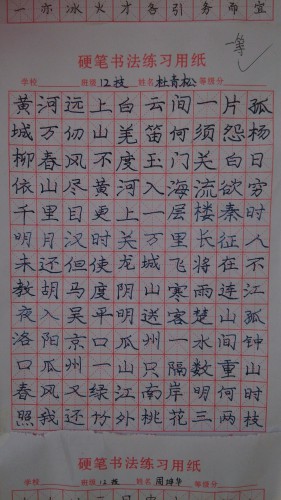 一 亦 冰 火 才 各 引 务 而 宜
一等
硬笔书法练习用纸
学校 班级 12技 姓名 杜青松 等级分
黄河远上白云间一片孤
城万仞山羌笛何须怨杨
柳春风不度玉门关白日
依山尽黄河入海流欲穷
千里目更上一层楼秦时
明月汉时关万里长征人
未还但使龙城飞将在不
教胡马度阴山寒雨连江
夜入吴平明送客楚山孤
洛阳京口瓜州一水间钟
口瓜州一山只隔数重山
春风又绿江南岸明何时
照我还竹外桃花三两枝
硬笔书法练习用纸
班级 12技 姓名